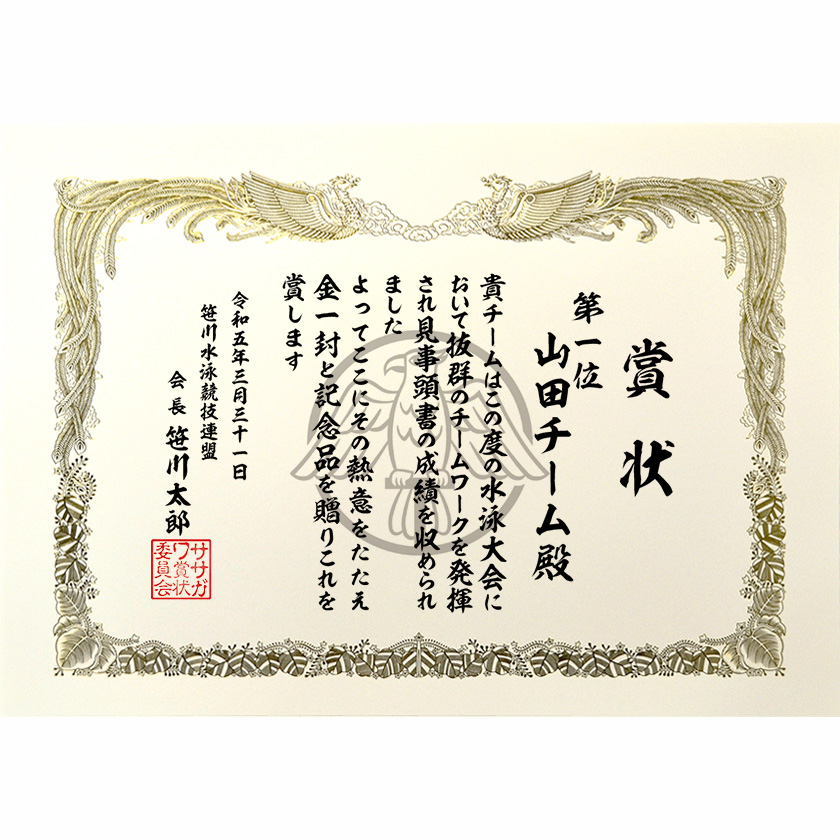 賞状
第一位
山田チーム殿
貴チームはこの度の水泳大会に
おいて抜群のチームワークを発揮
され見事頭書の成績を収められ
ました
よってここにその熱意をたたえ
金一封と記念品を贈りこれを
賞します
令和五年三月三十一日
笹川水泳競技連盟
会長 笹川太郎
ササガ
ワ賞状
委員会